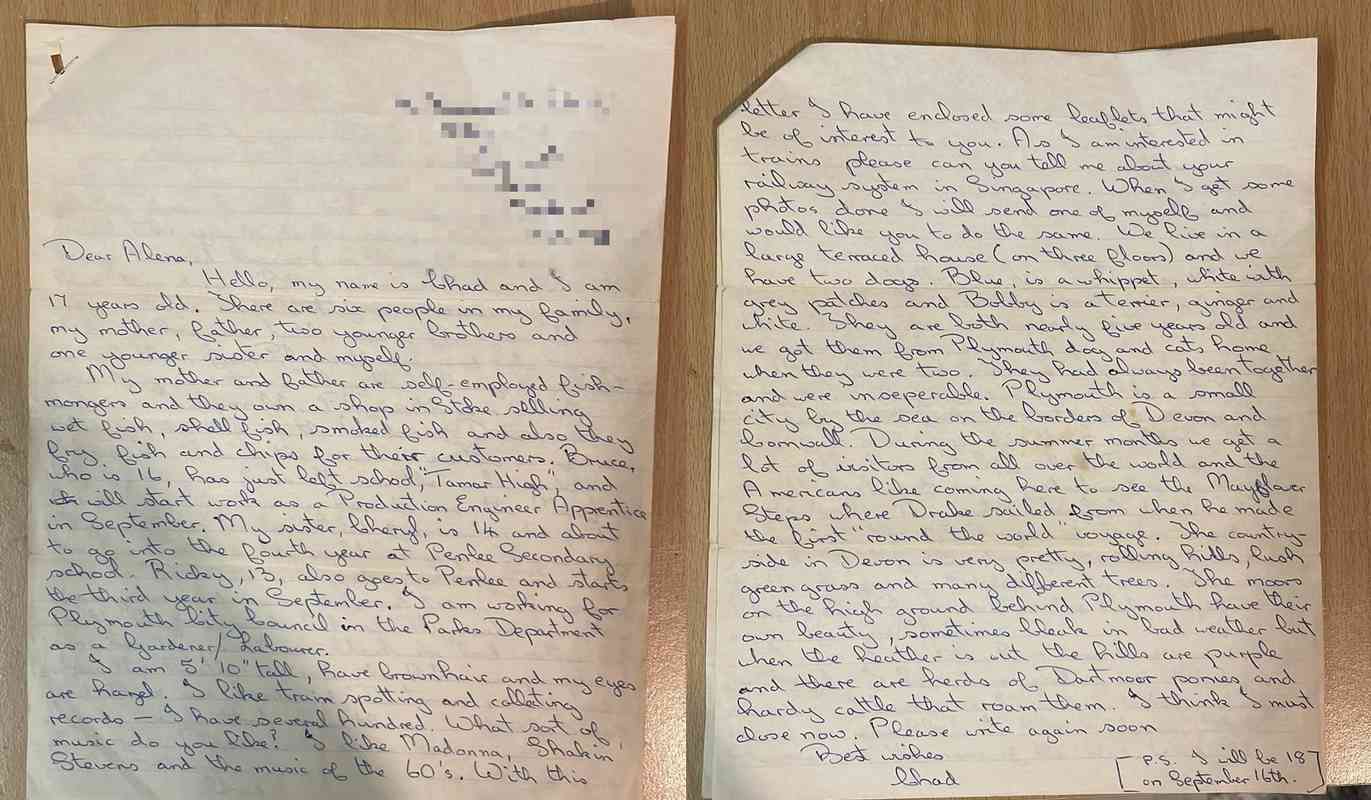 Dear Alena,
Hello, my name is Chad and I am
17 years old. There are six people in my family,
my mother, father, two younger brothers and
one younger sister and myself.
My mother and father are self-employed fish-
mongers and they own a shop in Stoke selling
wet fish, shell fish, smoked fish and also they
fry fish and chips for their customers. Bruce,
who is 16, has just left school, "Tamar High", and
will start work as a Production Engineer Apprentice
in September. My sister, Cheryl, is 14 and about
to go into the fourth year at Penlee Secondary
school. Ricky, 13, also goes to Penlee and starts
the third year in September. I am working for
Plymouth City Council in the Parks Department
as a Gardener/Labourer.
I am 5' 10" tall, have brown hair and my eyes
are hazel. I like train spotting and collecting
records – I have several hundred. What sort of
music do you like? I like Madonna, Shakin
Stevens and the music of the 60's. With this
letter I have enclosed some leaflets that might
be of interest to you. As I am interested in
trains please can you tell me about your
railway system in Singapore. When I get some
photos done I will send one of myself and
would like you to do the same. We live in a
large terraced house (on three floors) and we
have two dogs. Blue, is a whippet, white with
grey patches and Bobby is a terrier, ginger and
white. They are both nearly five years old and
we got them from Plymouth dog and cats home
when they were two. They had always been together
and were inseperable. Plymouth is a small
city by the sea on the borders of Devon and
Cornwall. During the summer months we get a
lot of visitors from all over the world and the
Americans like coming here to see the Mayflower
Steps where Drake sailed from when he made
the first "round the world" voyage. The country-
side in Devon is very pretty, rolling hills, lush
green grass and many different trees. The moors
on the high ground behind Plymouth have their
own beauty, sometimes bleak in bad weather but
when the heather is out the hills are purple
and there are herds of Dartmoor ponies and
hardy cattle that roam them. I think I must
close now. Please write again soon
Best wishes
Chad
[P.S. I will be 18
on September 16th.]